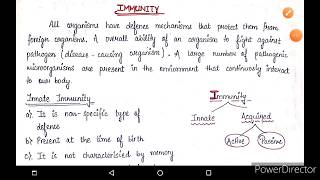 IMMUNITY
All organisms have defence mechanisms that protect them from
foreign organisms. A overall ability of an organism to fight against
pathogen (disease-causing organism). A large number of pathogenic
microorganisms are present in the environment that continuously interact
to our body.
Innate Immunity
a) It is non-specific type of
defense
b) Present at the time of birth
c) It is not characterised by memory
Immunity
Innate
Acquired
Active
Passive
PowerDirector